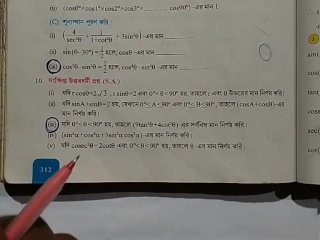 (ii) (cos0°×cos1°×cos2°×cos3°×............ cos90°) -এর মান।
(C) শূন্যস্থান পূরণ করি :
(i) (4/sec²θ + 1/1+cot²θ + 3sin²θ) -এর মান
(ii) sin(θ–30°) = 1/2 হলে, cosθ -এর মান
(iii) cos²θ–sin²θ = 1/2 হলে, cos⁴θ–sin⁴θ -এর মান
10. সংক্ষিপ্ত উত্তরধর্মী প্রশ্ন (S.A.)
(i) যদি r cosθ=2√3, r sinθ=2 এবং 0°<θ<90° হয়, তাহলে r এবং θ উভয়ের মান নির্ণয় করি।
(ii) যদি sinA+sinB=2 হয়, যেখানে 0°≤A≤90° এবং 0°≤B≤90°, তাহলে (cosA+cosB)-এর
মান নির্ণয় করি।
(iii) যদি 0°<θ<90° হয়, তাহলে (9tan²θ+4cot²θ) -এর সর্বনিম্ন মান নির্ণয় করি।
(iv) (sin⁶α+cos⁶α+3sin²α cos²α) -এর মান নির্ণয় করি।
(v) যদি cosec²θ=2cotθ এবং 0°<θ<90° হয়, তাহলে θ -এর মান নির্ণয় করি।
312
sin
tan
sec(
cot(